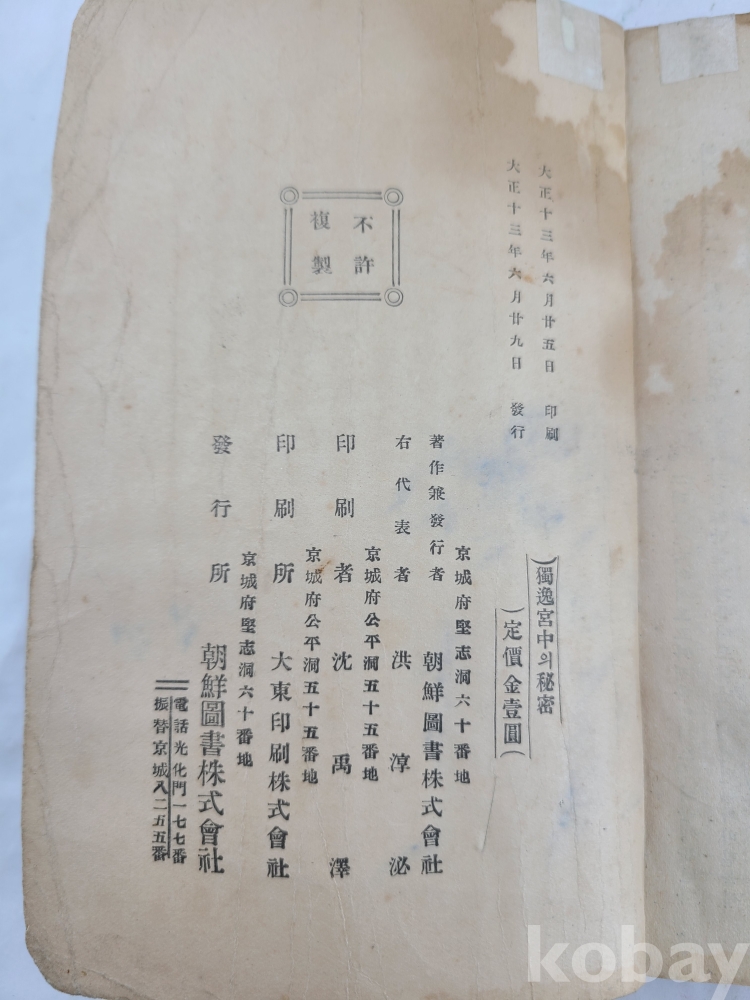 大正十三年六月廿五日 印刷
大正十三年六月廿九日 發行
獨逸宮中의秘密
定價金壹圓
京城府堅志洞六十番地
著作兼發行者 朝鮮圖書株式會社
右代表者 洪淳泌
京城府公平洞五十五番地
印刷者 沈禹澤
京城府公平洞五十五番地
印刷所 大東印刷株式會社
京城府堅志洞六十番地
發行所 朝鮮圖書株式會社
電話光化門一一七七番
振替京城八二五五番
不許
複製
kobay